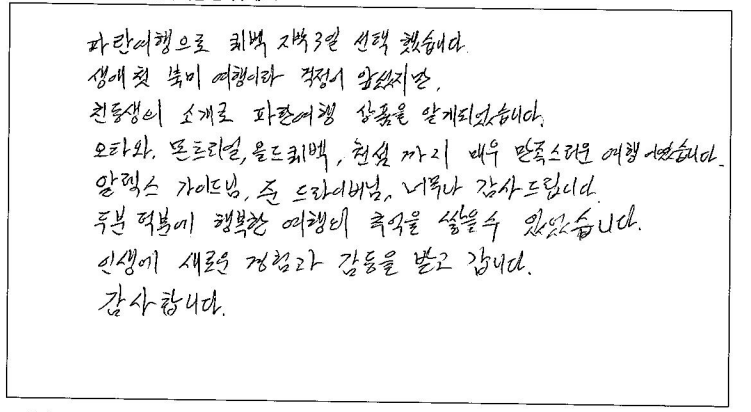 파란여행으로 퀘백 자욱3일 선택 했습니다.
생애 첫 북미 여행이라 걱정이 앞섰지만,
친동생의 소개로 파란여행 상품을 알게되었습니다.
오타와, 몬트리얼, 올드퀘백, 천섬 까지 매우 만족스러운 여행 이었습니다.
알렉스 가이드님, 준 드라이버님, 너무나 감사드립니다.
두분 덕분에 행복한 여행의 추억을 쌓을수 있었습니다.
인생에 새로운 경험과 감동을 받고 갑니다.
감사합니다.